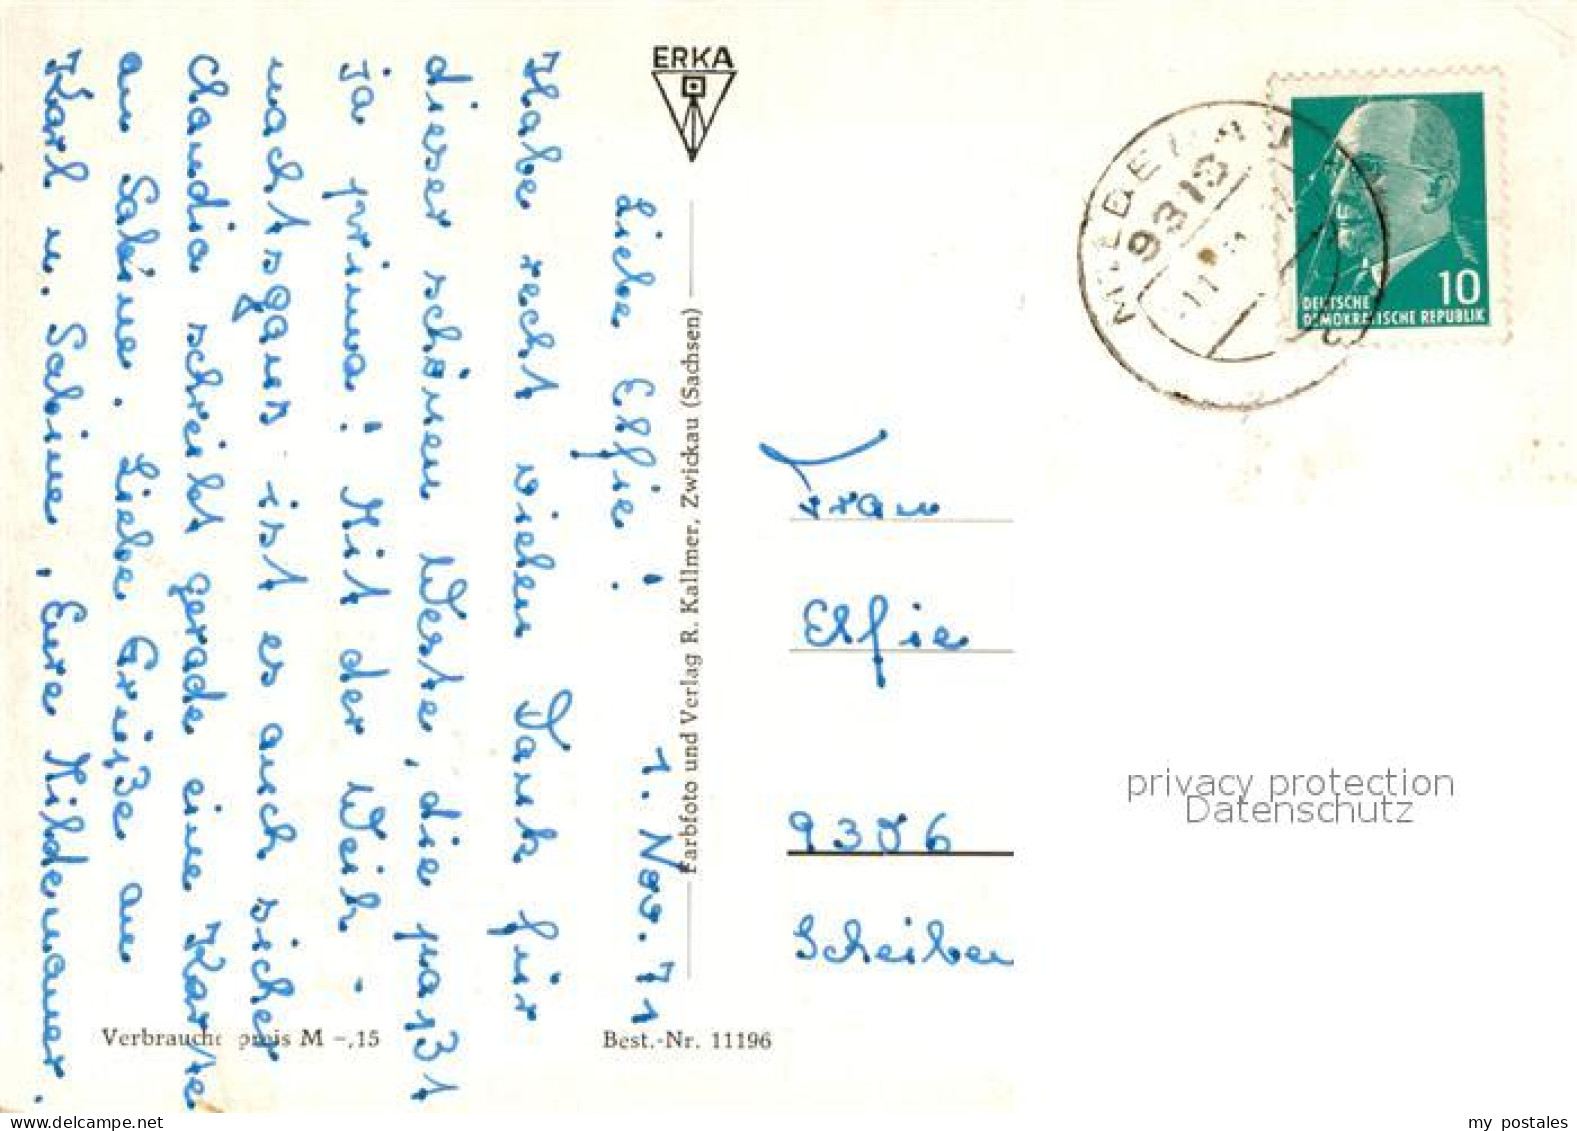 ERKA
Liebe Elfie! 1. Nov. 71
Habe recht vielen Dank für
dieser schönen Weste, die paßt
ja prima! Mit der Weih-
nachtsgans ist es auch sicher
Claudia schreibt gerade eine Karte
an Sabine. Liebe Grüße an
Karl u. Sabine, Eure Hildemauer.
Farbfoto und Verlag R. Kallmer, Zwickau (Sachsen)
Verbraucherpreis M -,15
Best.-Nr. 11196
9313
10
DEUTSCHE
DEMOKRATISCHE REPUBLIK
Frau
Elfie
9306
Scheiben
privacy protection
Datenschutz
my postales